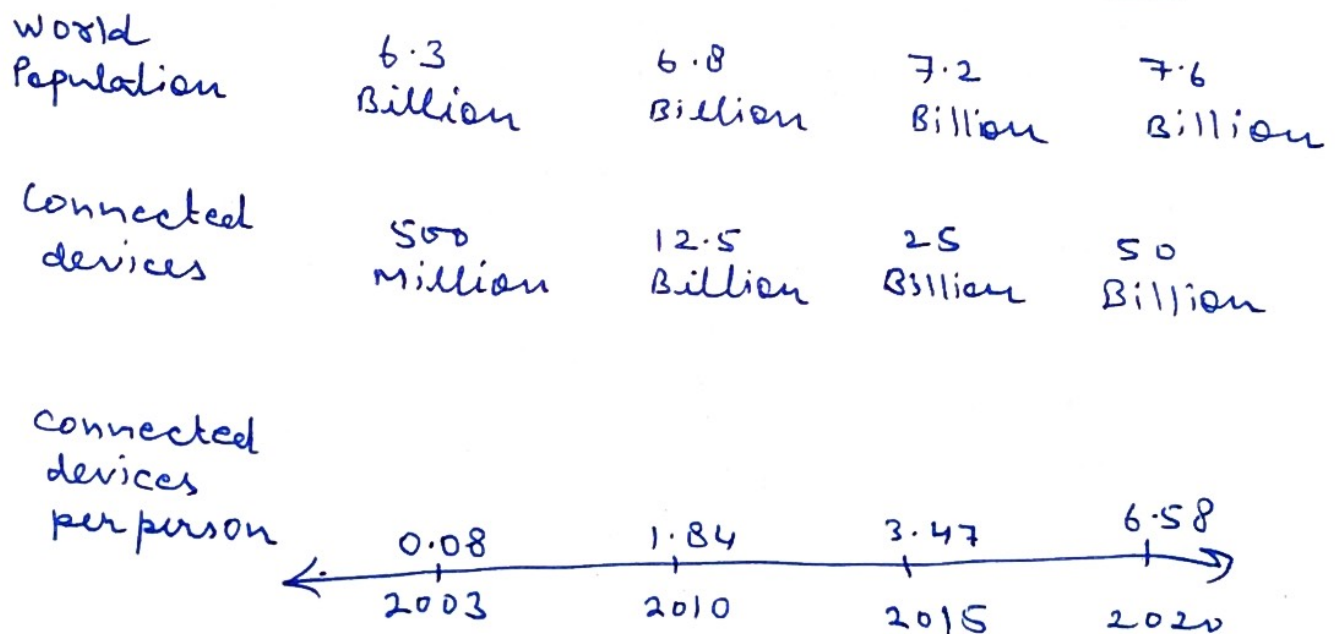 World
Population
6.3
Billion
6.8
Billion
7.2
Billion
7.6
Billion
Connected
devices
500
Million
12.5
Billion
25
Billion
50
Billion
connected
devices
per person
0.08
1.84
3.47
6.58
2003
2010
2015
2020